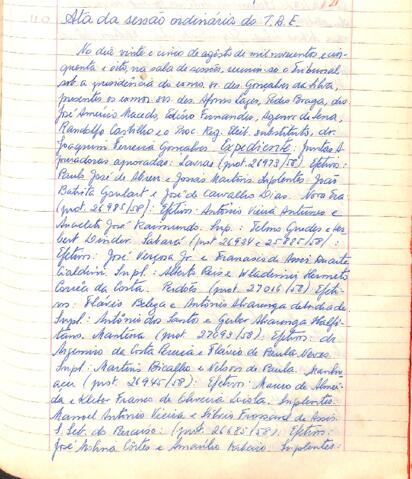 Ata da sessão ordinária do T.R.E.
No dia vinte e cinco de agosto de mil novecentos e cin-
quenta e oito, na sala de sessões, reuniu-se o Tribunal
sob a presidência do exmo. sr. des. Gonçalves da Silva,
presentes os exmos. srs. des. Afonso Lages, Pedro Braga, drs
José Américo Macedo, Edésio Fernandes, Agenor de Sena,
Randolfo Castilho e o Proc. Reg. Eleit. substituto, dr.
Joaquim Ferreira Gonçalves. Expediente: Juntas A-
puradoras aprovadas: Lavras (prot 26973/58) Eftivos:
Paulo José de Abreu e Jonas Martins. Suplentes: João
Batista Goulart e José de Carvalho Dias. Nova Era
(prot 26985/58): Eftivos: Antônio Vieira Antunes e
Anacleto José Raimundo. Sup.: Telmo Guedes e Her-
bert Dender. Sabará (prot 26934 e 25885/58):
Eftivos: José Jr. e Francisco de Assis Duarte
Caldeira. Supl: Alberto Reis e Wladimir Hermeto
Corrêa da Costa. Perdões (prot 27016/58) Efeti-
vos: Flávio Beleza e Antônio Alvarenga
Supl: Antônio dos Santos e Alvarenga
Mantena (prot 27093/58): Eftivos: drs
Argemiro da Costa Pereira e Flávio de Paula Neves.
Supl: Martins Bicalho e Nelson de Paula. Manhu-
açu (prot 26945/58): Eftivos: Mauro de Almei-
da e Kleter Franco de Oliveira Suplentes:
Manoel Antônio Vieira e Sílvio de Assis
S. Seb. do Paraíso: (prot 26685/58): Eftivos:
José Molina Côrtes e Amarílio Ribeiro. Suplentes: